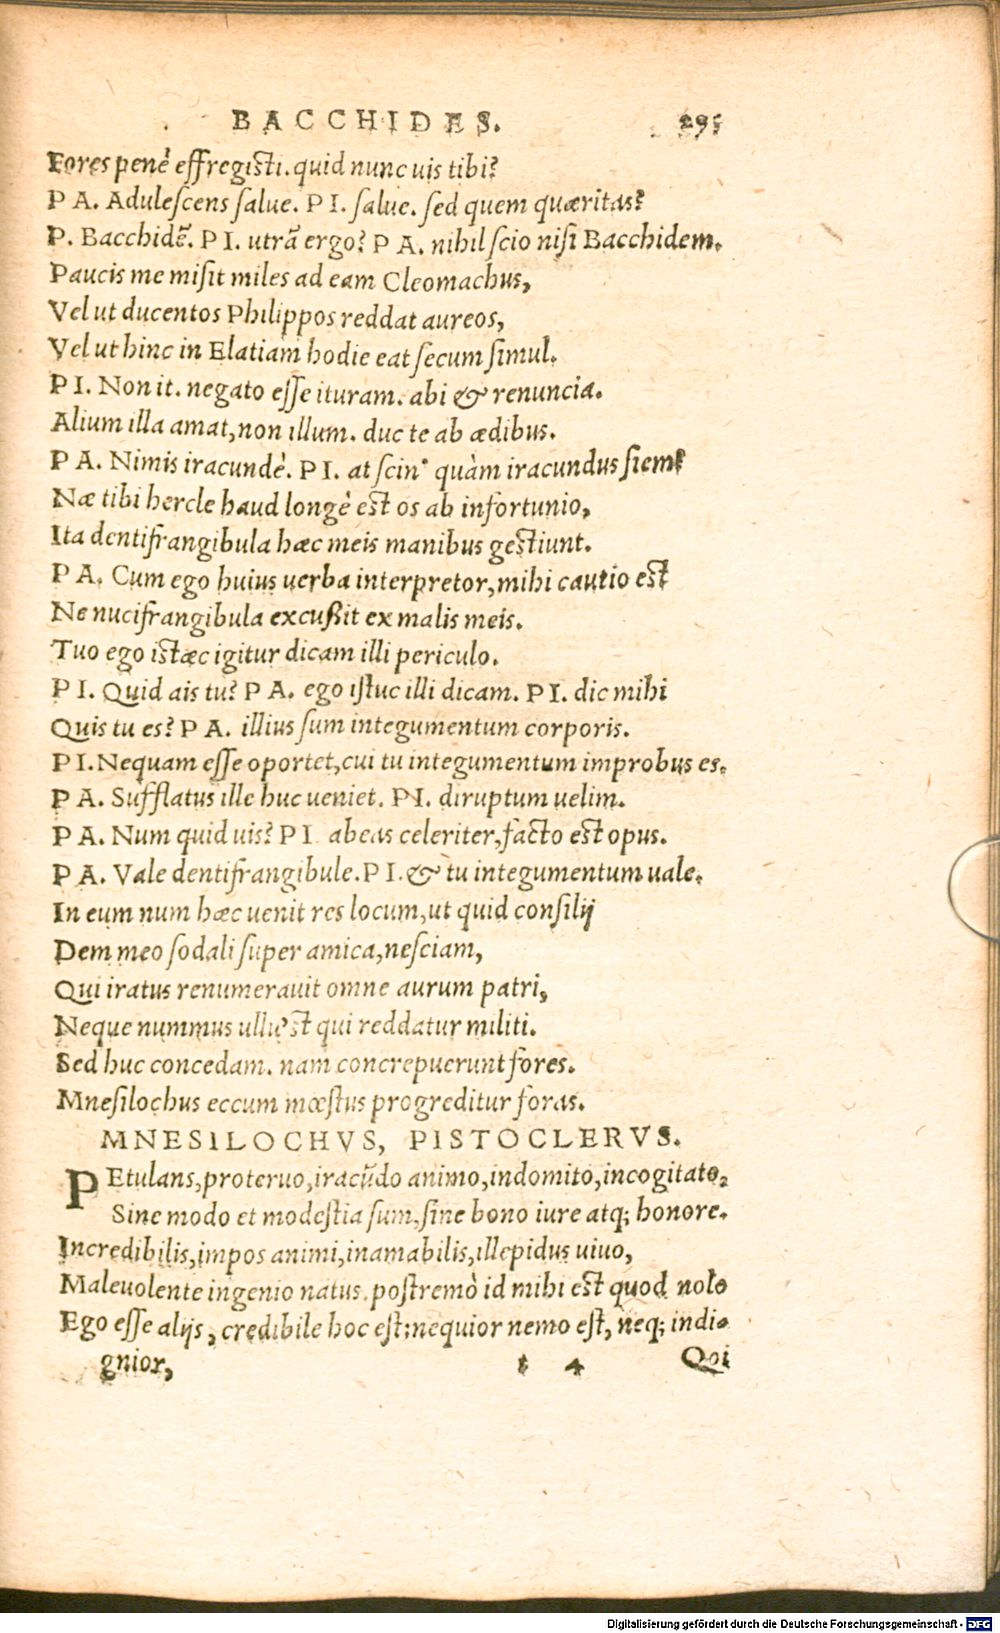 BACCHIDES. 295
Fores penè effregisti. quid nunc uis tibi?
P A. Adulescens salue. P I. salue. sed quem quæritas?
P. Bacchidẽ. P I. utrã ergo? P A. nihil scio nisi Bacchidem.
Paucis me misit miles ad eam Cleomachus,
Vel ut ducentos Philippos reddat aureos,
Vel ut hinc in Elatiam hodie eat secum simul.
P I. Non it. negato esse ituram. abi & renuncia.
Alium illa amat, non illum. duc te ab ædibus.
P A. Nimis iracundè. P I. at scin' quàm iracundus siem?
Næ tibi hercle haud longè est os ab infortunio,
Ita dentifrangibula hæc meis manibus gestiunt.
P A. Cum ego huius uerba interpretor, mihi cautio est
Ne nucifrangibula excußit ex malis meis.
Tuo ego istæc igitur dicam illi periculo.
P I. Quid ais tu? P A. ego istuc illi dicam. P I. dic mihi
Quis tu es? P A. illius sum integumentum corporis.
P I. Nequam esse oportet, cui tu integumentum improbus es.
P A. Sufflatus ille huc ueniet. P I. diruptum uelim.
P A. Num quid uis? P I abeas celeriter, facto est opus.
P A. Vale dentifrangibule. P I. & tu integumentum uale.
In eum num hæc uenit res locum, ut quid consilij
Dem meo sodali super amica, nesciam,
Qui iratus renumerauit omne aurum patri,
Neque nummus ullu'st qui reddatur militi.
Sed huc concedam. nam concrepuerunt fores.
Mnesilochus eccum mœstus progreditur foras.
MNESILOCHVS, PISTOCLERVS.
PEtulans, proteruo, iracũdo animo, indomito, incogitato,
Sine modo et modestia sum, sine bono iure atq; honore.
Incredibilis, impos animi, inamabilis, illepidus uiuo,
Maleuolente ingenio natus. postremò id mihi est quod nolo
Ego esse alijs, credibile hoc est: nequior nemo est, neq; indi-
gnior, t 4 Qui
Digitalisierung gefördert durch die Deutsche Forschungsgemeinschaft - DFG